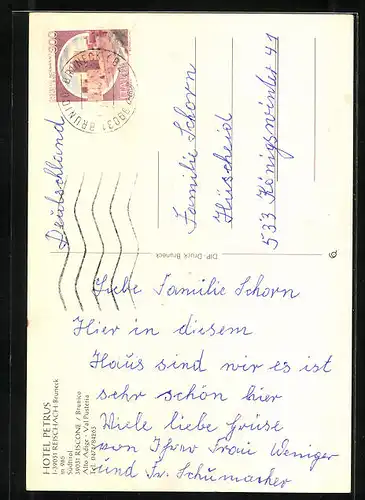 HOTEL PETRUS
I-39031 REISCHACH - Bruneck
m 985
Südtirol
39031 RISCONE / Brunico
Alto Adige - Val Pusteria
Tel. 0474/84263
Liebe Familie Schorn
Hier in diesem
Haus sind wir es ist
sehr schön hier
Viele liebe Grüse
von Ihrer Frau Weniger
und Fr. Schumacher
DIP- Druck Bruneck
Deutschland
Familie Schorn
Hüscheid
533 Königswinter 41
39031 BRUNICO
300